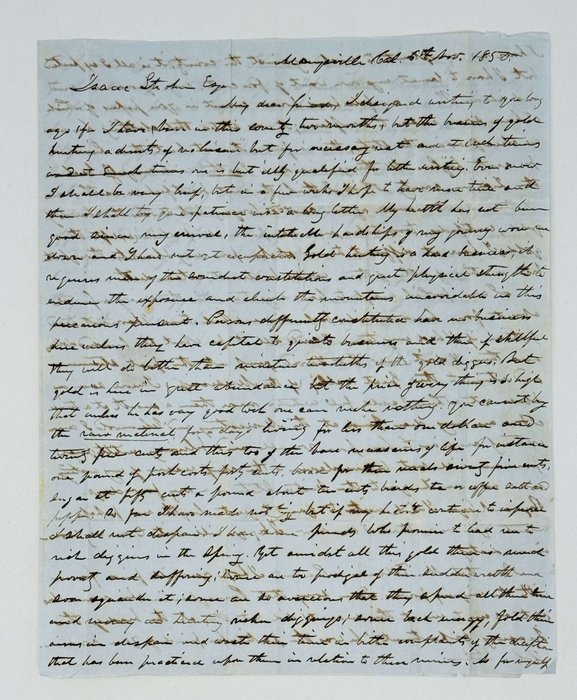 Marysville Cal. 5th Nov. 1850.
Isaac Stohn Esq
My dear friend, I designed writing to you long
ago for I have been in the county two months, but the business of gold
hunting admits of no leisure but for necessary rest and at such times
and at such times one is but illy qualified for letter writing. Even now
I shall be very brief, but in a few weeks I hope to have more time and
then I shall try your patience with a long letter. My health has not been
good since my arrival, the hardships of my journey wore me
down and I have not yet recuperated. Gold hunting is a hard business, it
requires men of the soundest constitutions and great physical strength to
endure the exposure and climb the mountains unavoidable in this
precarious pursuit. Persons differently constituted have no business
here unless they have capital to go into business and then if skillful
they will do better than nineteen twentieths of the gold diggers. But
gold is here in great abundance, but the price of every thing is so high
that unless he has very good luck one can make nothing. You cannot buy
the raw material for days living for less than one dollar and
twenty five cents and this too of the bare necessaries of life for instance
one pound of pork costs fifty cts bread for the meals seventy five cents,
sugar at fifty cents a pound about ten cts besides tea or coffee salt and
pepper. So far I have made nothing but if my health continues to improve
I shall not despair. I have friends who promise to lead me to
rich diggings in the Spring. Yet amidst all this gold there is much
poverty and suffering; some are too prodigal of their sudden wealth and
soon squander it; some so avaricious that they spend all their time
and money in hunting richer diggings; some lack energy, fold their
arms in despair and waste their time in bitter complaints of the deception
that has been practiced upon them in relation to these mines. As for myself